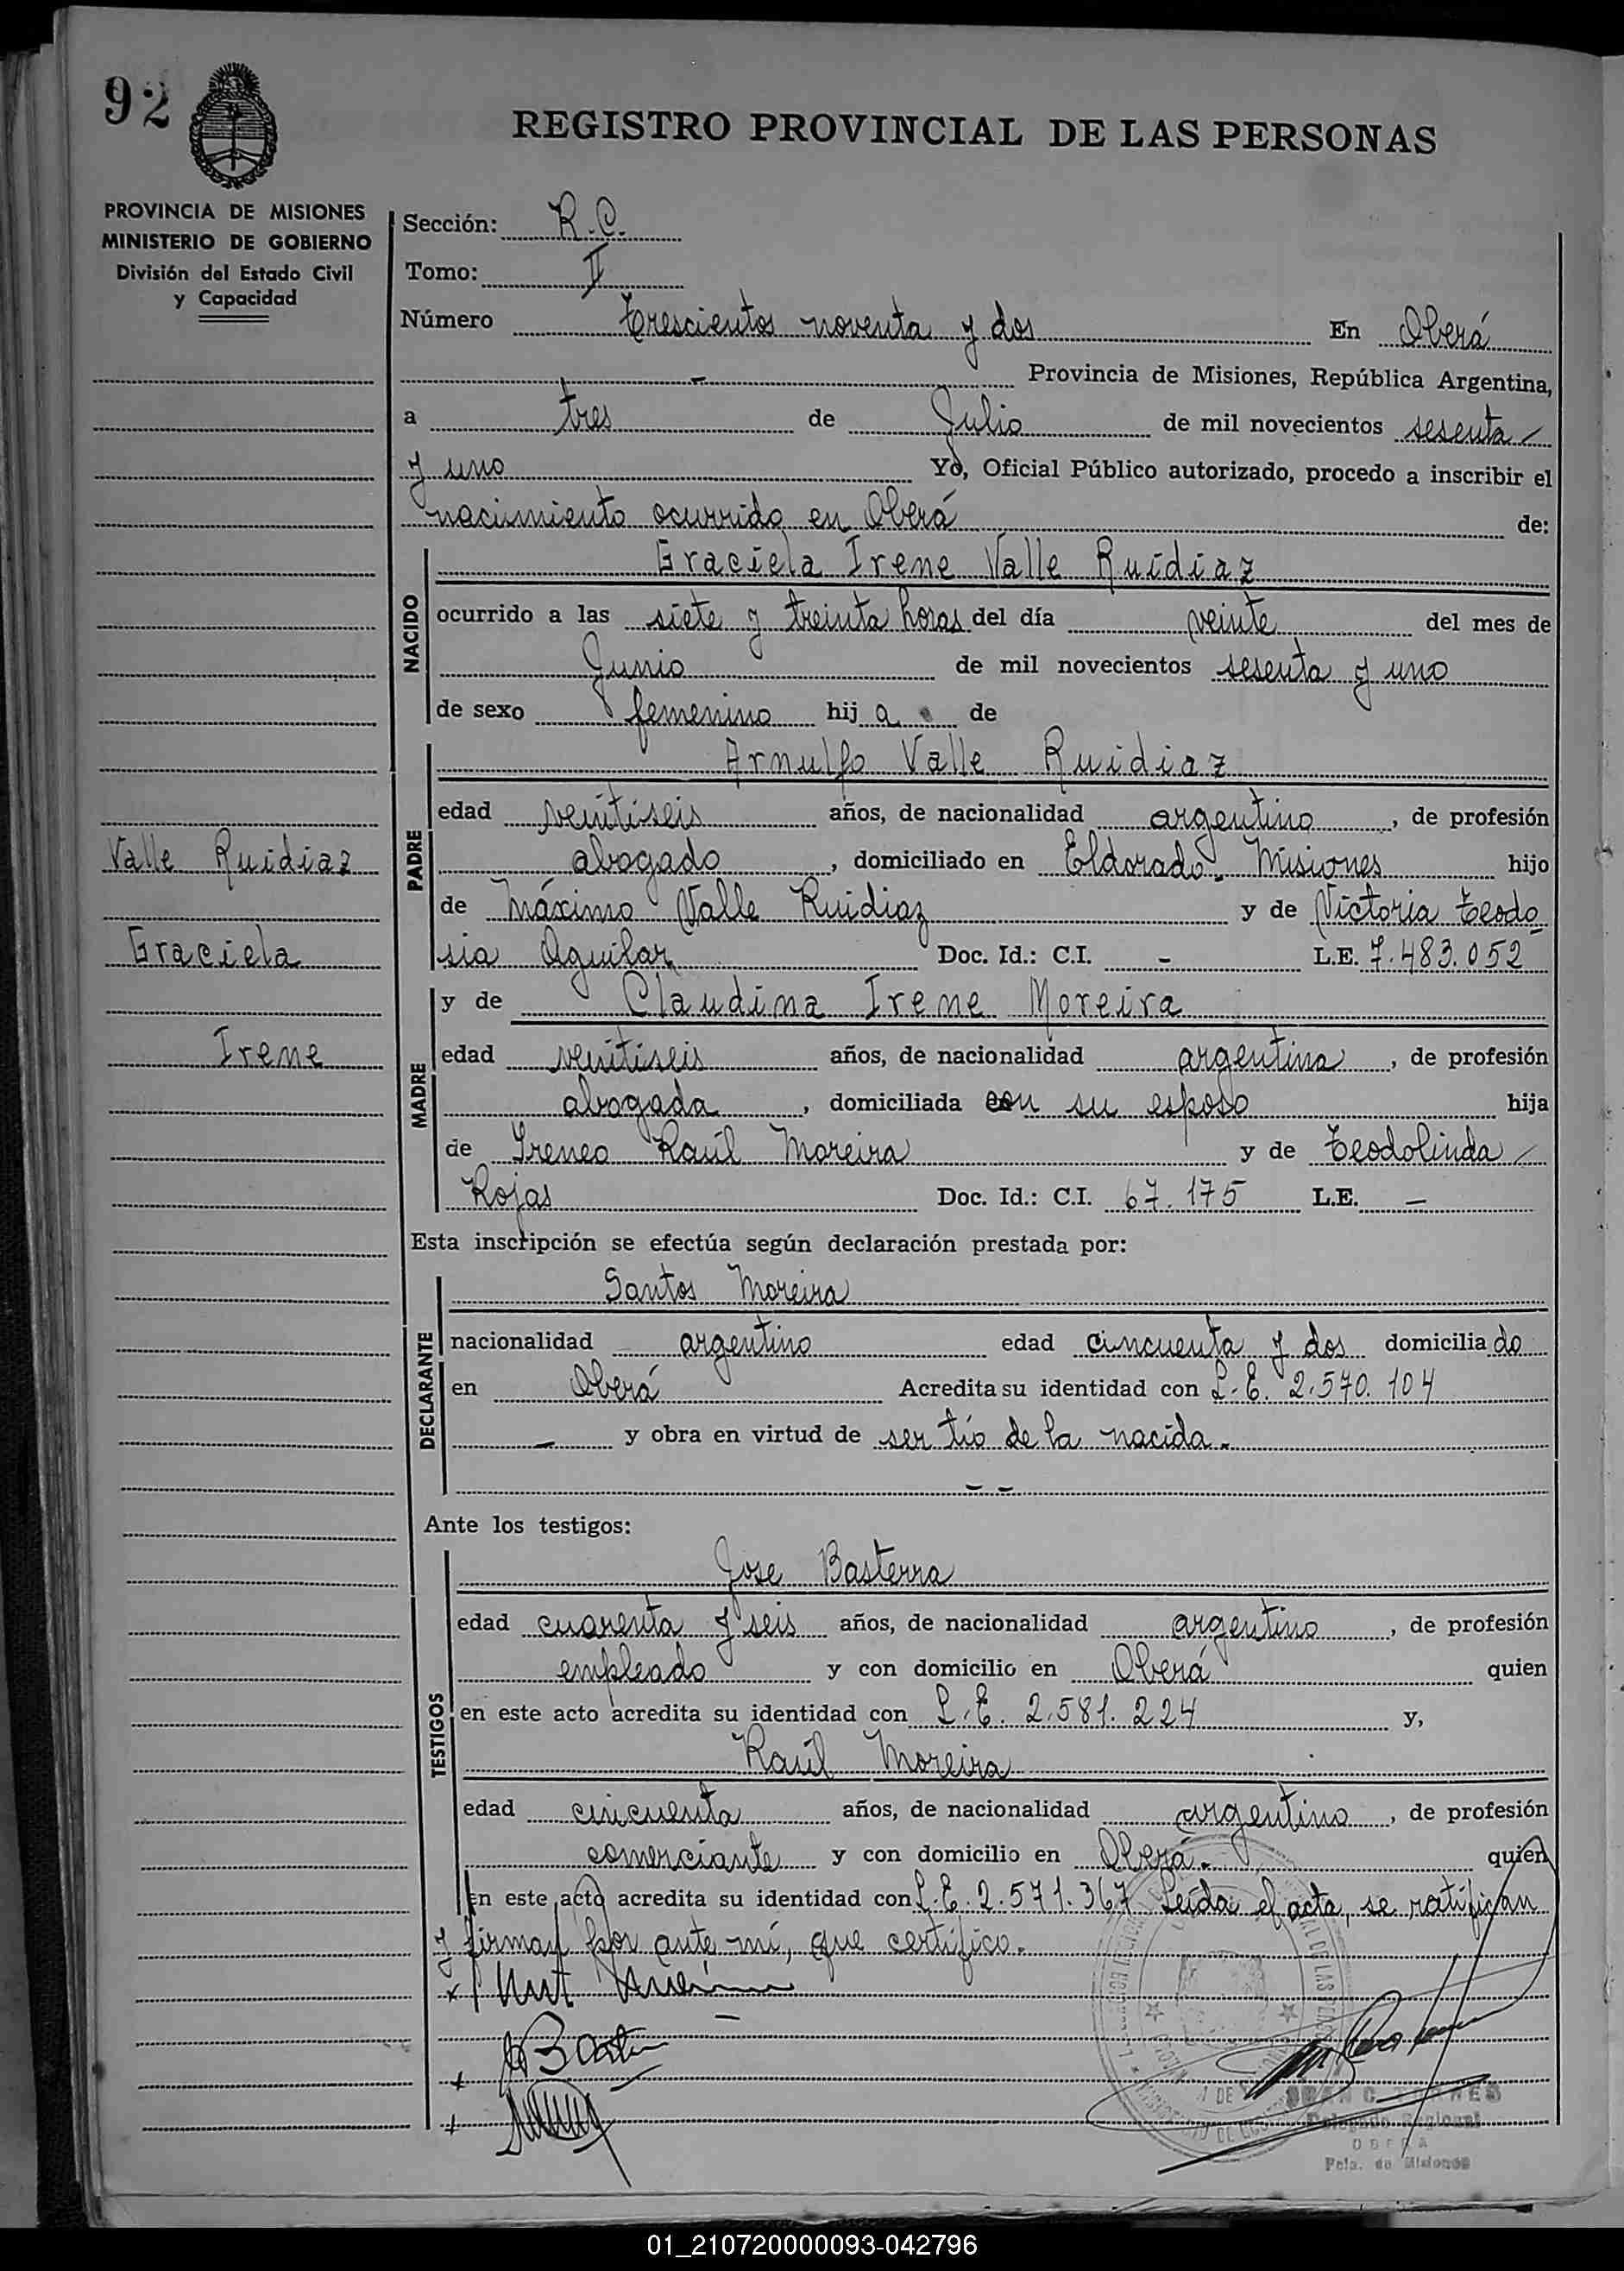 92
REGISTRO PROVINCIAL DE LAS PERSONAS
PROVINCIA DE MISIONES
MINISTERIO DE GOBIERNO
División del Estado Civil
y Capacidad
Sección: R.C.
Tomo: II
Número Trescientos noventa y dos En Oberá
- Provincia de Misiones, República Argentina,
a tres de Julio de mil novecientos sesenta
y uno Yo, Oficial Público autorizado, procedo a inscribir el
nacimiento ocurrido en Oberá de:
NACIDO
Graciela Irene Valle Ruidiaz
ocurrido a las siete y treinta horas del día veinte del mes de
Junio de mil novecientos sesenta y uno
de sexo femenino hij a de
PADRE
Arnulfo Valle Ruidiaz
edad veintiseis años, de nacionalidad argentino, de profesión
abogado, domiciliado en Eldorado. Misiones hijo
de Máximo Valle Ruidiaz y de Victoria Teodo
sia Aguilar Doc. Id.: C.I. - L.E. 7.483.052
Valle Ruidiaz
Graciela
Irene
MADRE
y de Claudina Irene Moreira
edad veintiseis años, de nacionalidad argentina, de profesión
abogada, domiciliada con su esposo hija
de Ireneo Raúl Moreira y de Teodolinda
Rojas Doc. Id.: C.I. 67.175 L.E. -
Esta inscripción se efectúa según declaración prestada por:
DECLARANTE
Santos Moreira
nacionalidad argentino edad cincuenta y dos domicilia do
en Oberá Acredita su identidad con L.E. 2.570.104
- y obra en virtud de ser tío de la nacida.
- -
Ante los testigos:
TESTIGOS
Jose Basterra
edad cuarenta y seis años, de nacionalidad argentino, de profesión
empleado y con domicilio en Oberá quien
en este acto acredita su identidad con L.E. 2.581.224 y,
Raúl Moreira
edad cincuenta años, de nacionalidad argentino, de profesión
comerciante y con domicilio en Oberá. quien
en este acto acredita su identidad con L.E. 2.571.367 Leída el acta, se ratifican
y firman por ante mí, que certifico.
Delegado Regional
OBERA
Pcia. de Misiones
01_210720000093-042796